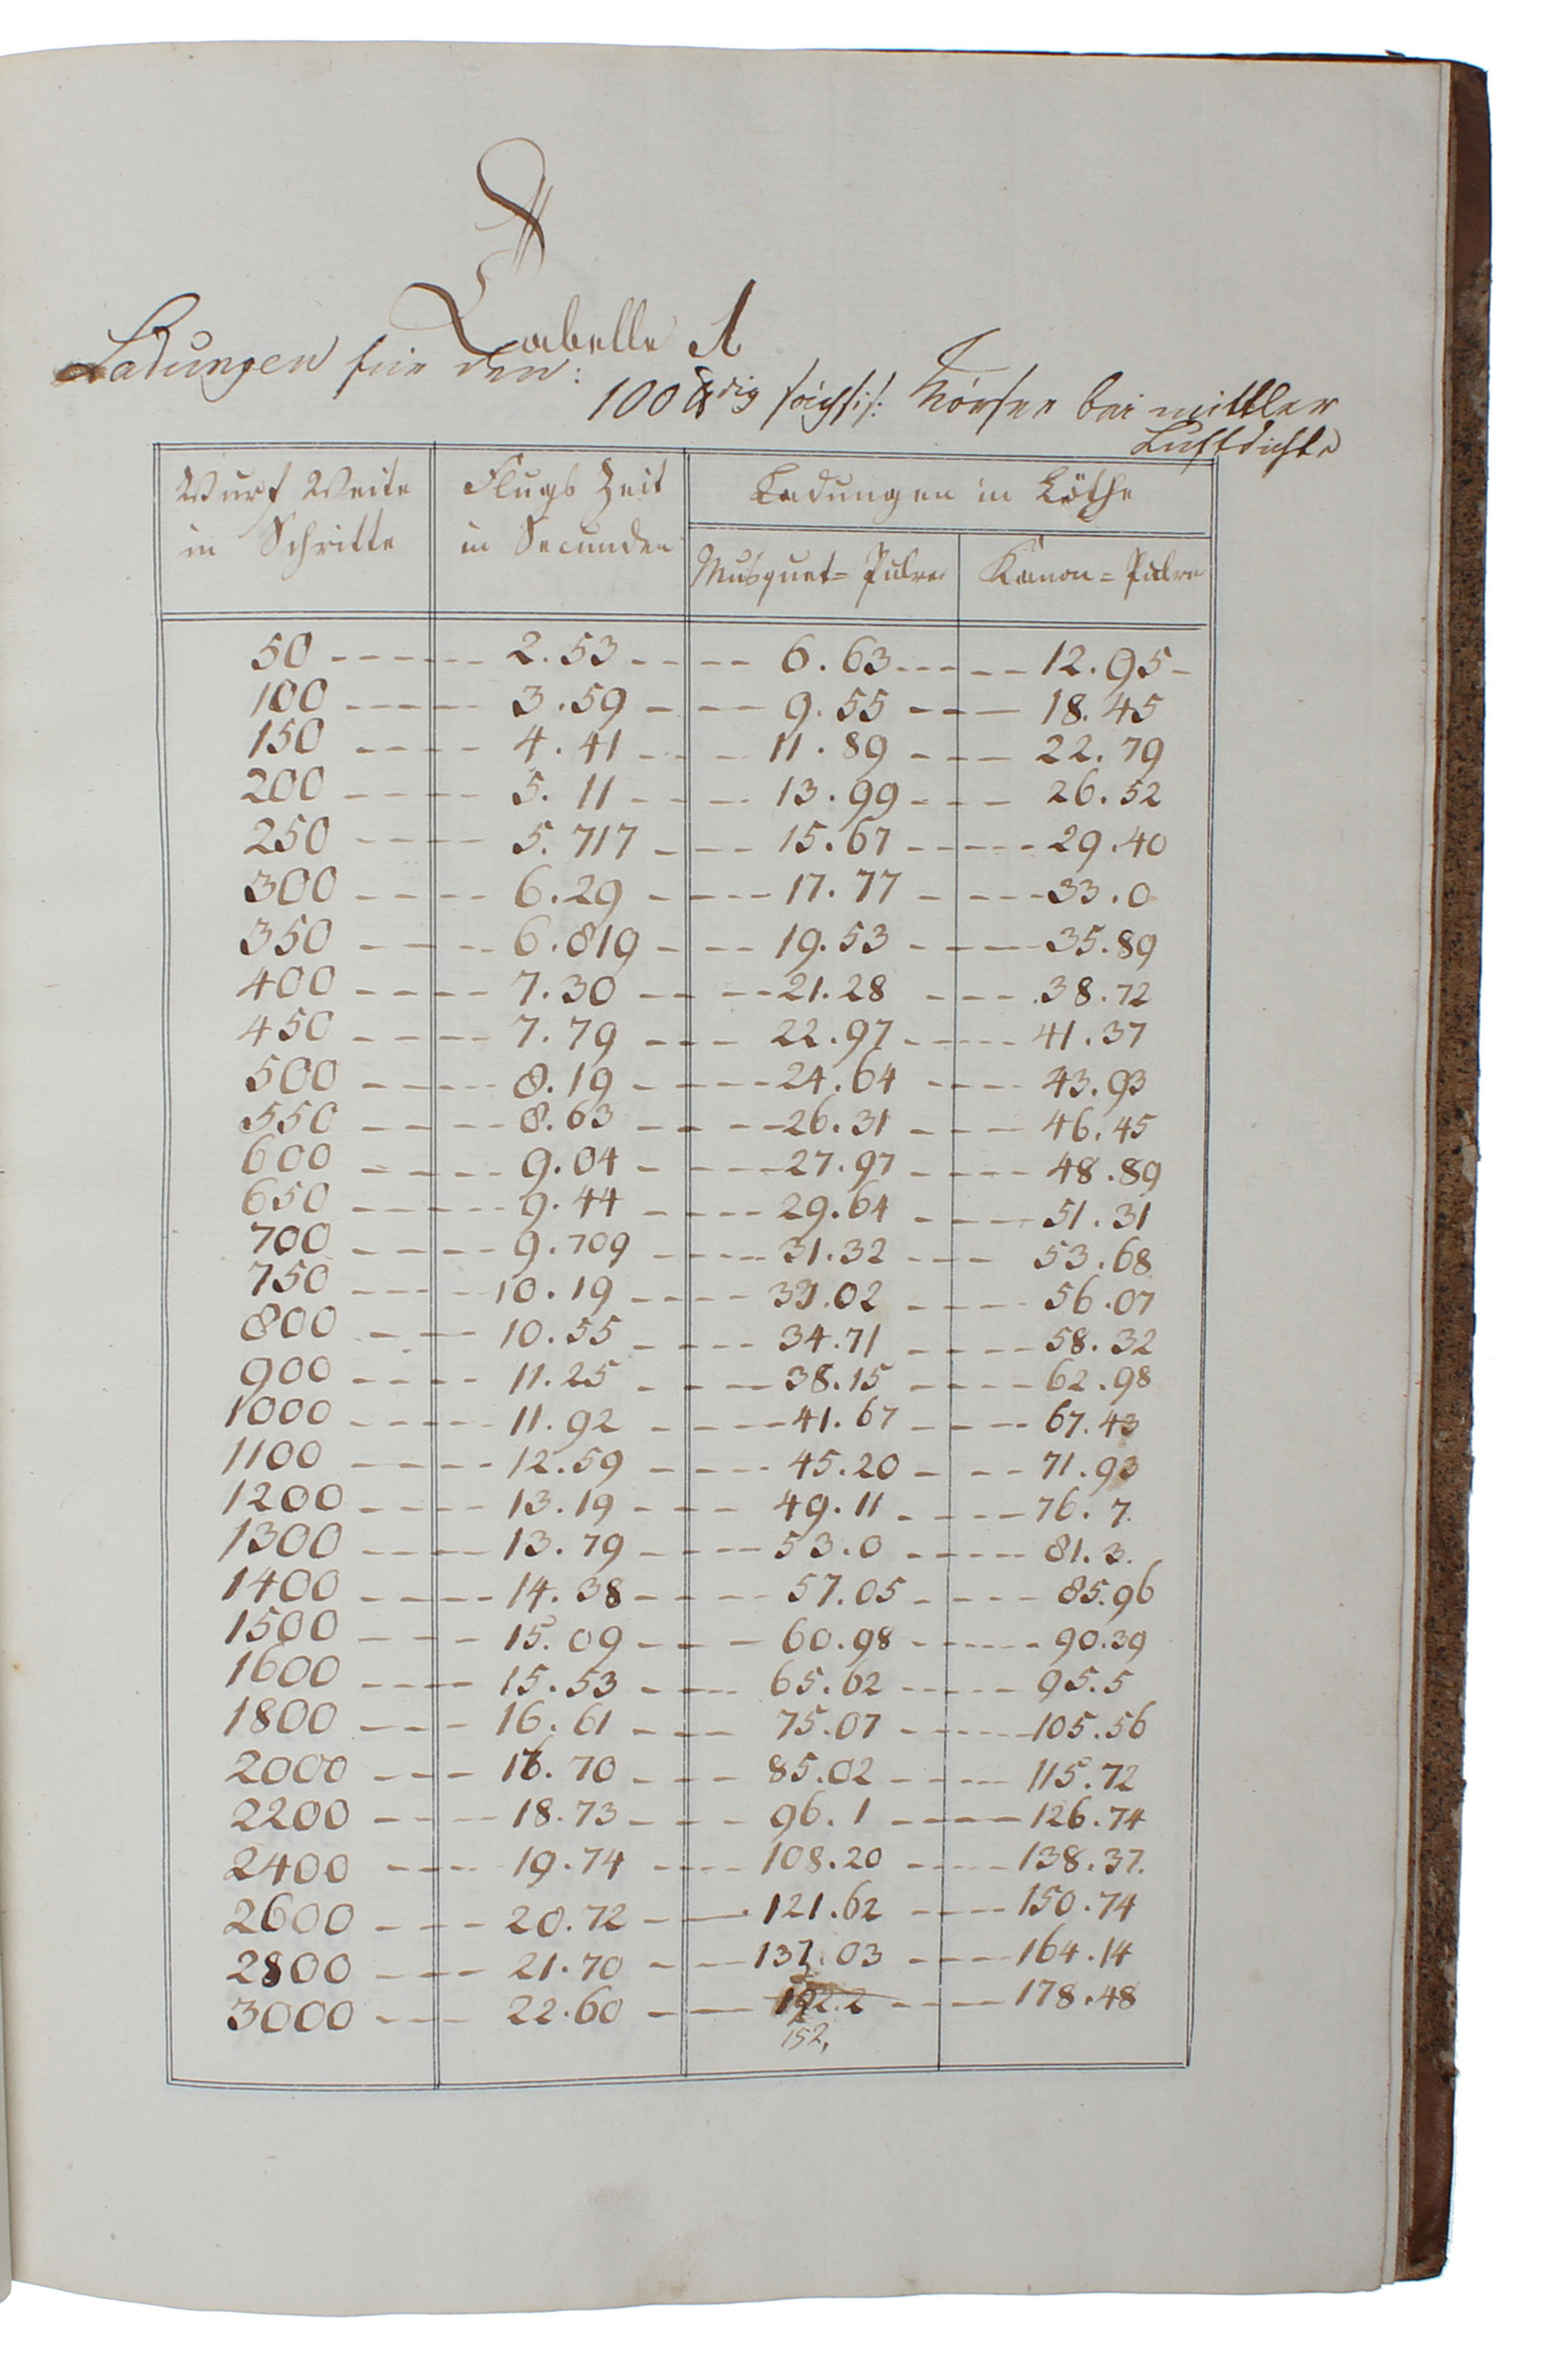 Tabelle A
Ladungen für den:
100 ℔dig sächsis: Mörser bei mittler
Luftdichte
Wurf Weite in Schritte | Flugs Zeit in Secunden | Ladungen in Löthe
Musquet= Pulver | Kanon= Pulver
50 ------ 2.53 ---- 6.63 ----- 12.95 -
100 ----- 3.59 ---- 9.55 ---- 18.45
150 ---- 4.41 ---- 11.89 ---- 22.79
200 ---- 5.11 ---- 13.99 ---- 26.52
250 ---- 5.717 ---- 15.67 ----- 29.40
300 ---- 6.29 ---- 17.77 ---- 33.0
350 ---- 6.819 ---- 19.53 ---- 35.89
400 ---- 7.30 ---- 21.28 ---- 38.72
450 ---- 7.79 ---- 22.97 ---- 41.37
500 ---- 8.19 ---- 24.64 ---- 43.93
550 ---- 8.63 ---- 26.31 ---- 46.45
600 ---- 9.04 ---- 27.97 ---- 48.89
650 ---- 9.44 ---- 29.64 ---- 51.31
700 ---- 9.709 ---- 31.32 ---- 53.68
750 ---- 10.19 ---- 33.02 ---- 56.07
800 ---- 10.55 ---- 34.71 ---- 58.32
900 ---- 11.25 ---- 38.15 ---- 62.98
1000 ---- 11.92 ---- 41.67 ---- 67.43
1100 ---- 12.59 ---- 45.20 ---- 71.93
1200 ---- 13.19 ---- 49.11 ---- 76.7.
1300 ---- 13.79 ---- 53.0 ---- 81.3.
1400 ---- 14.38 ---- 57.05 ---- 85.96
1500 ---- 15.09 ---- 60.98 ---- 90.39
1600 ---- 15.53 ---- 65.62 ---- 95.5
1800 ---- 16.61 ---- 75.07 ---- 105.56
2000 ---- 17.70 ---- 85.02 ---- 115.72
2200 ---- 18.73 ---- 96.1 ---- 126.74
2400 ---- 19.74 ---- 108.20 ---- 138.37.
2600 ---- 20.72 ---- 121.62 ---- 150.74
2800 ---- 21.70 ---- 137.03 ---- 164.14
3000 ---- 22.60 ---- 192.2 ---- 178.48
152,